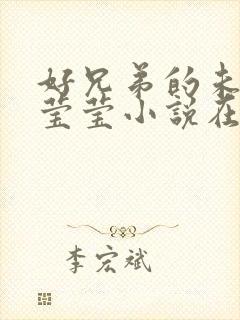 好兄弟的未
莹莹小说在
李宏斌